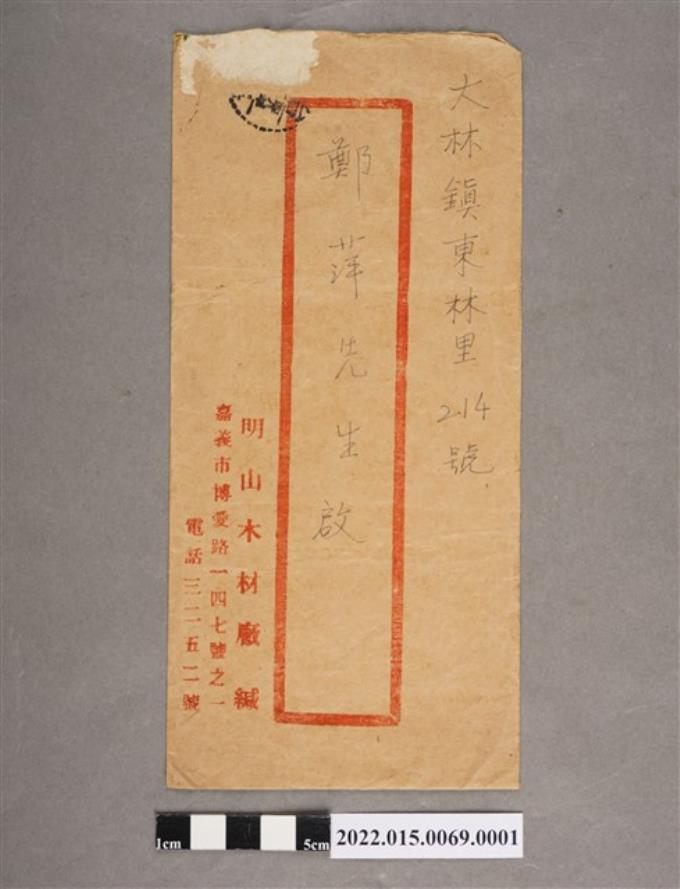 大林鎮東林里214號
鄭萍先生啟
明山木材廠 緘
嘉義市博愛路一四七號之一
電話三二五二號
1cm
5cm
2022.015.0069.0001